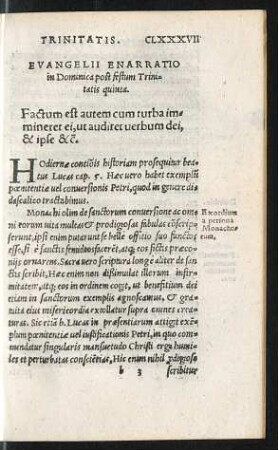 TRINITATIS. CLXXXVII
EVANGELII ENARRATIO
in Dominica post festum Trini-
tatis quinta.
Factum est autem cum turba im-
mineret ei, ut audiret uerbum dei,
& ipse &c̃.
Hodiernæ concióis historiam prosequitur bea-
tus Lucas cap. 5. Hæc uero habet exemplũ
pœnitentiæ uel conuersionis Petri, quod in genere di-
dascalico tractabimus.
Monachi olim de sanctorum conuersione ac mori
torum uita multas & prodigiosas fabulas cõscripse-
runt, ipsi enim putarunt se belle officio suo functos
esse, si sanctis simulos uixisse, atq; eos fictis præco-
nijs ornarent. Sacra uero scriptura longe aliter de san-
ctis scribit, Hæc enim non dissimulat illorum infir-
mitatem, atq; eos in ordinem cogit, ut beneficia dei
tam in sanctorum exemplis agnoscamus, & gratui
ta eius misericordia exultur supra omnes creatu-
ras. Sic etiã b. Lucas in præsentiarum attigit exem-
plum pœnitentiæ uel iustificationis Petri, in quo com-
mendatur singularis mansuetudo Christi erga humi-
les et perturbatas conscẽtias, Hic enim nihil ꝓdigiose
Exordium
a
Monacho-
rum.
b 3 scribitur